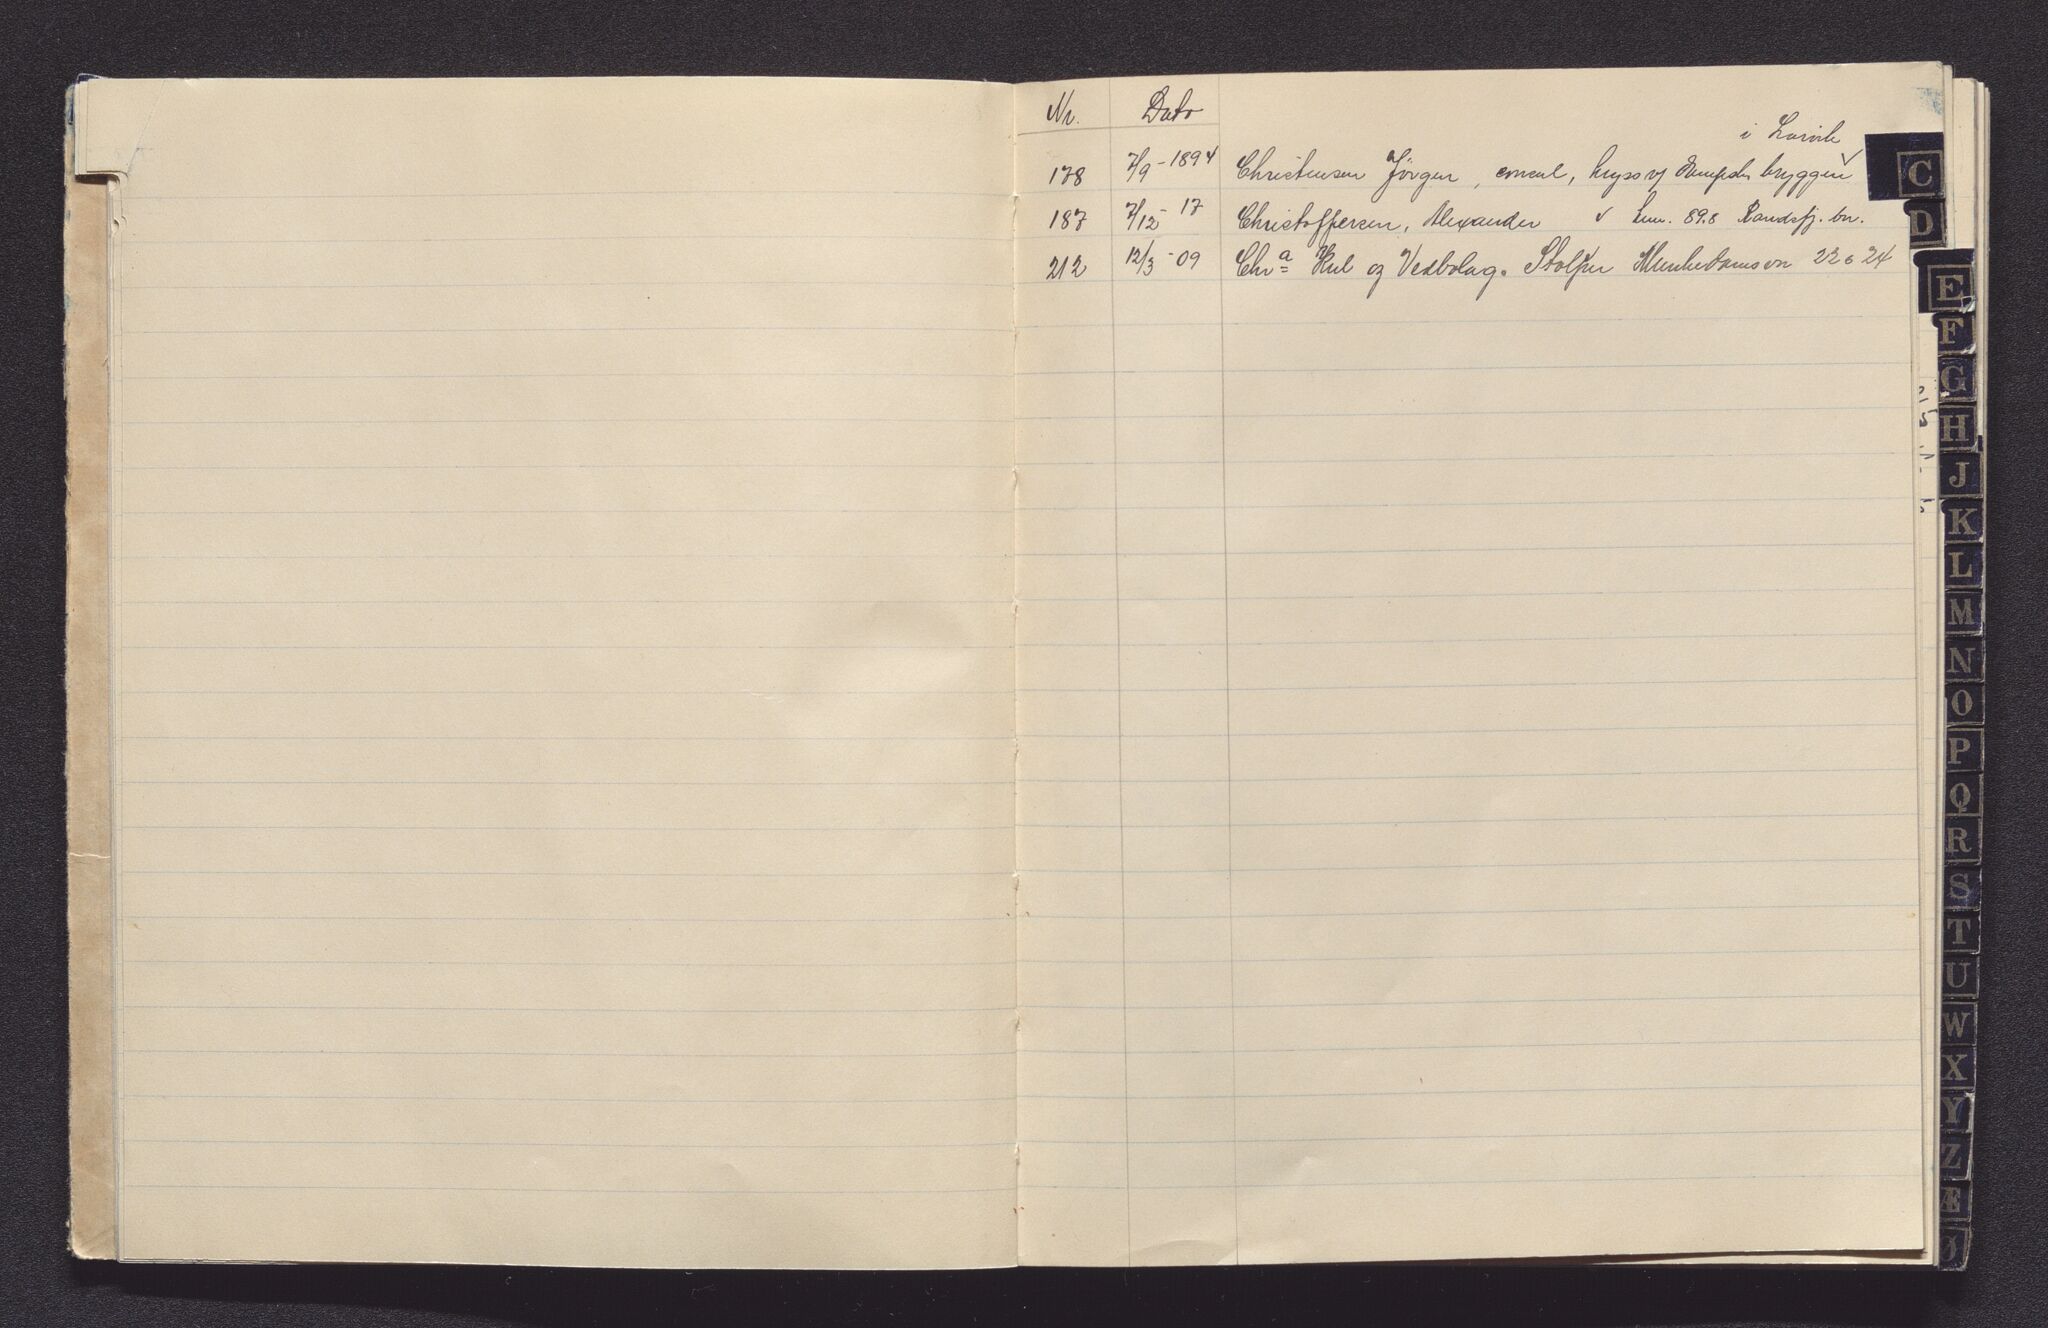 Nr. Dato
i Larvik
178 7/9 - 1894 Christensen Jörgen, consul, kryss v/ bryggen
187 7/12 - 17 Christoffersen, Alexander v km. 89.8 Randsfj. bn.
212 12/3 - 09 Chr a Kul og Vedbolag. Stolper Munkedamsvn 22 o 24
C
D
E
F
G
H
J
K
L
M
N
O
P
Q
R
S
T
U
W
X
Y
Z
Æ
Ø